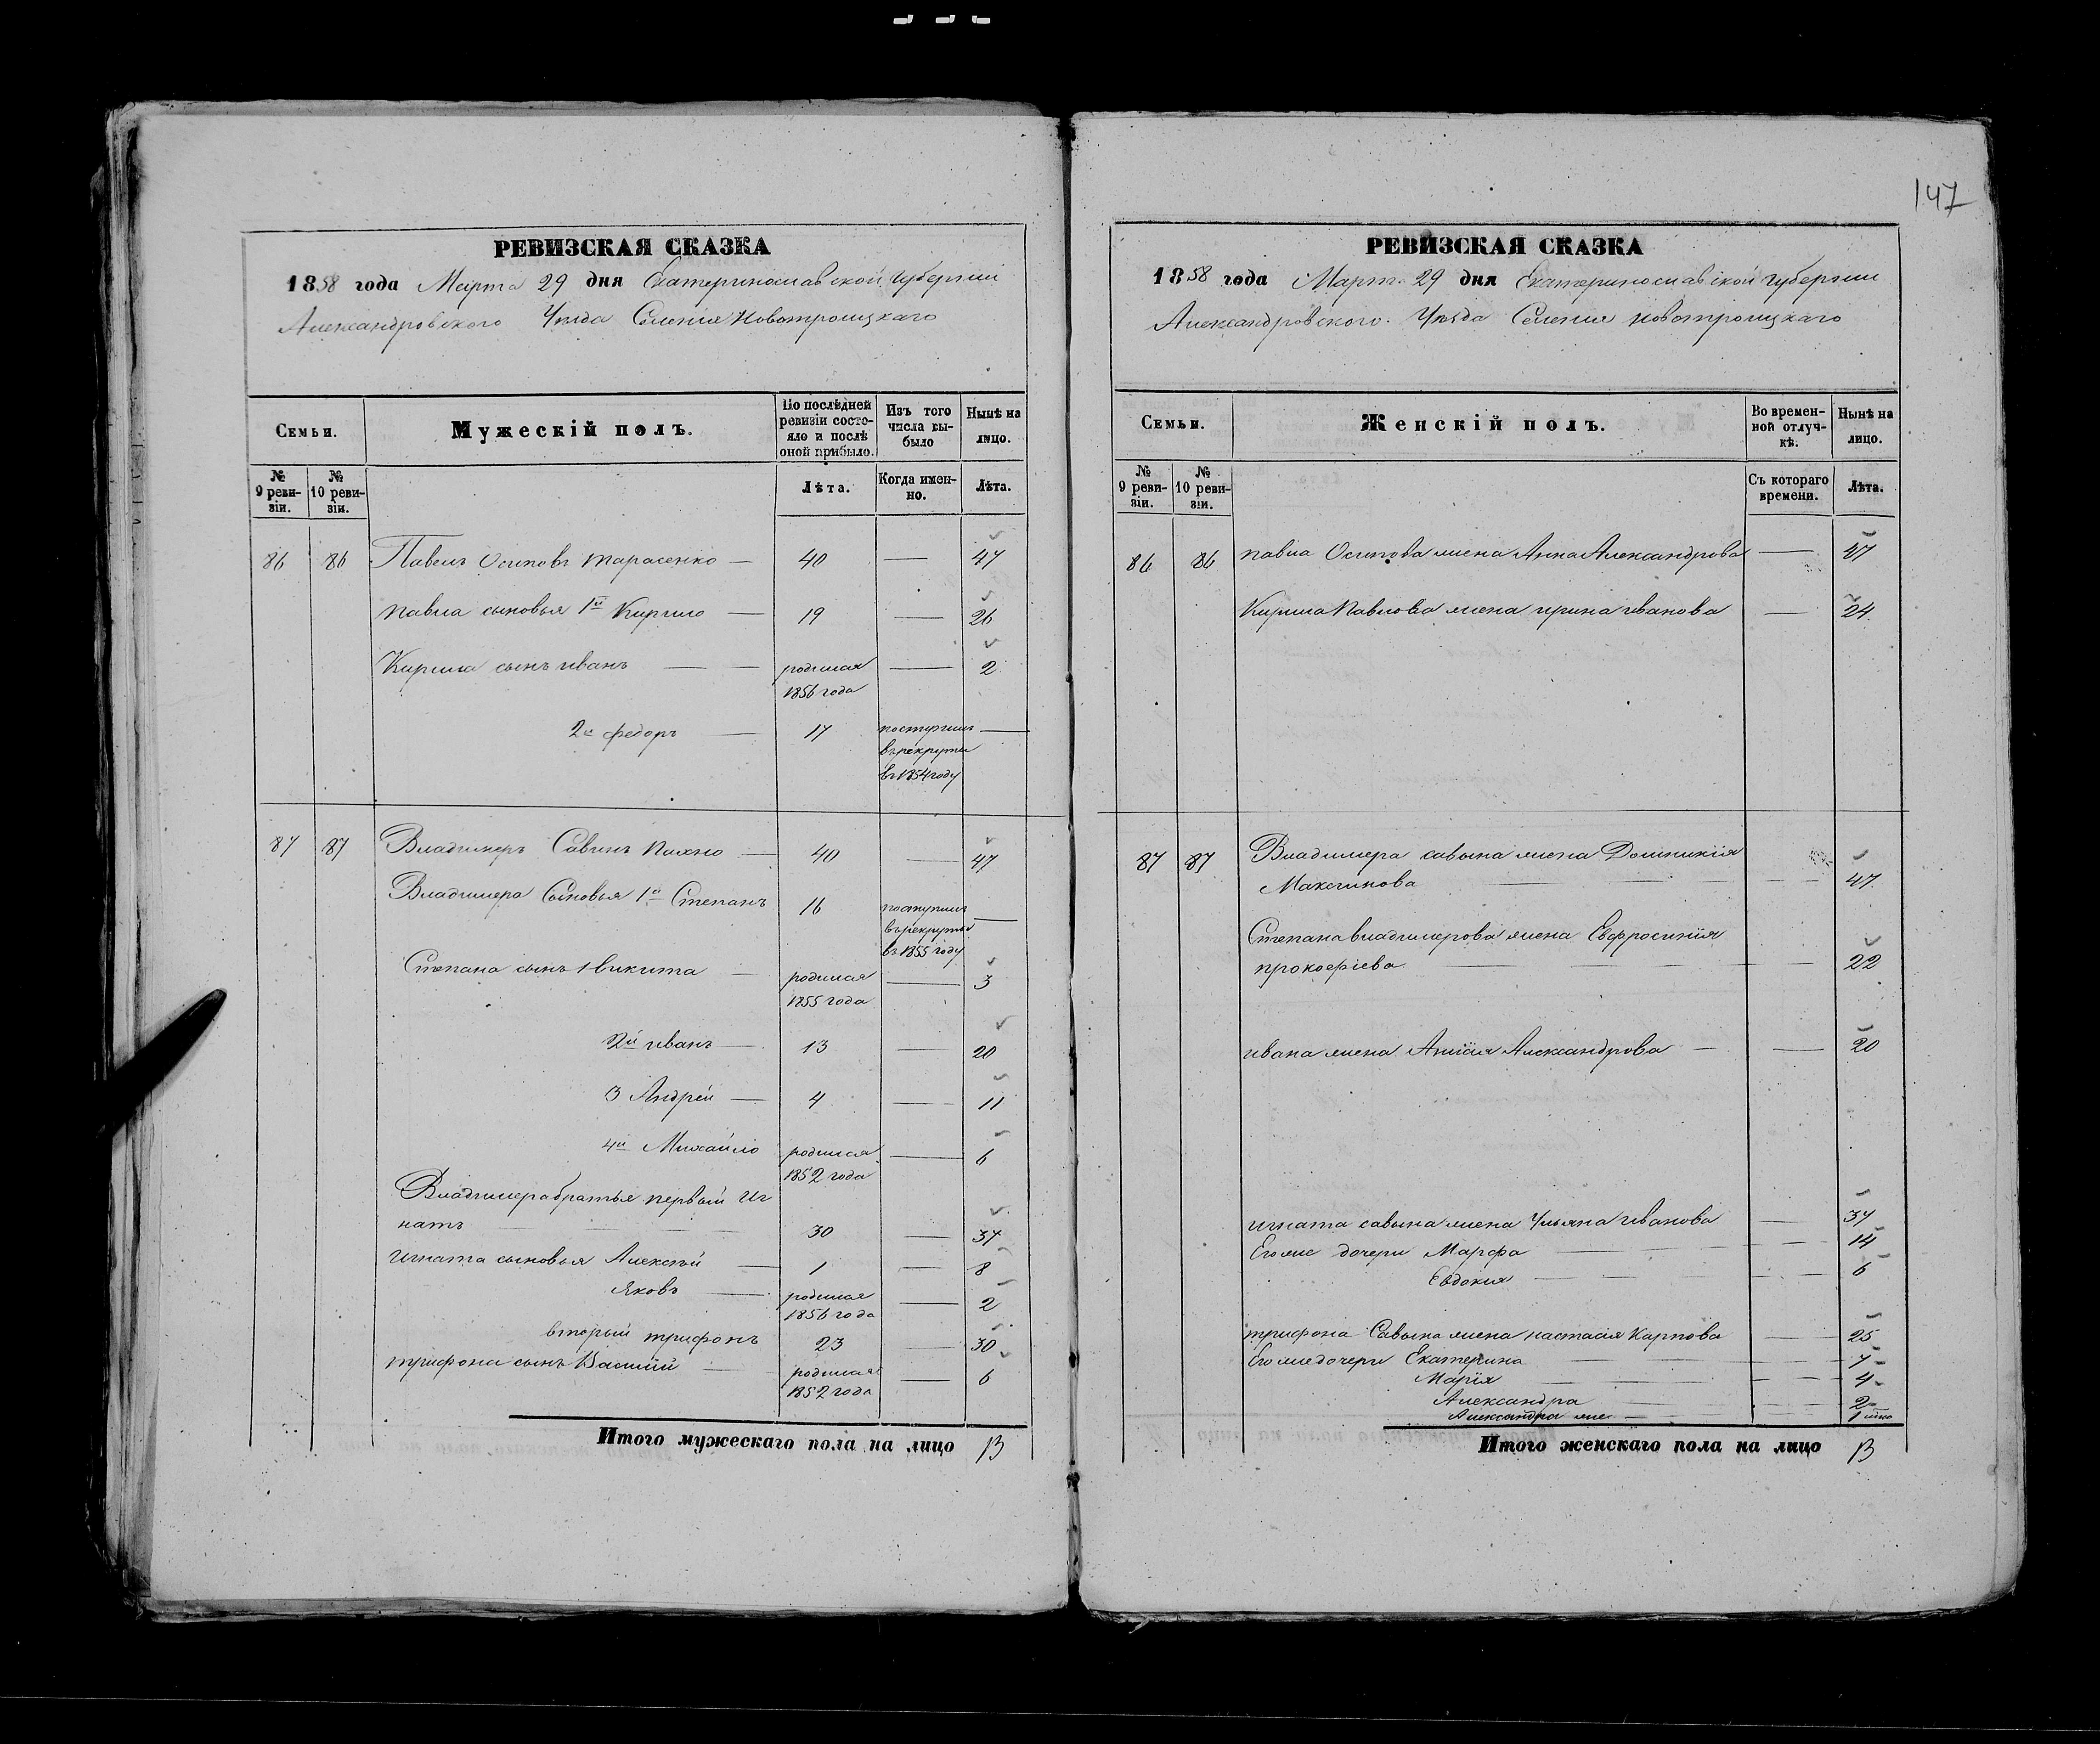 147
РЕВИЗСКАЯ СКАЗКА
1858 года Марта 29 дня Екатеринославской губернии
Александровского Уезда Селения Новотроицкаго
Семьи.
Мужескій полъ.
По послѣдней ревизіи состояло и послѣ оной прибыло.
Изъ того числа выбыло
Нынѣ на лицо.
№ 9 ревизіи.
№ 10 ревизіи.
Лѣта.
Когда именно.
Лѣта.
86 86 Павелъ Осиповъ Тарасенко — 40 — 47
Павла сыновья 1й Кирило — 19 — 26
Кирила сынъ иванъ — — родился 1856 года — 2
2й федоръ — 17 поступилъ въ рекруты въ 1854 году —
87 87 Владимеръ Савинъ Пахно — 40 — 47
Владимера Сыновья 1й Степанъ 16 поступилъ въ рекруты въ 1855 году —
Степана сынъ Никита — родился 1855 года — 3
2й иванъ — 13 — 20
3 Андрей — 4 — 11
4й Михайло родился 1852 года — 6
Владимера братья первый Иг
натъ — — — 30 — 37
Игната сыновья Алексѣй — 1 — 8
Яковъ — родился 1856 года — 2
вторый трифонъ 23 — 30
трифона сынъ Василий — родился 1852 года — 6
Итого мужескаго пола на лицо 13
РЕВИЗСКАЯ СКАЗКА
1858 года Март. 29 дня Екатеринославской губернии
Александровского Уѣзда Селения Новотроицкаго
Семьи.
Женскій полъ.
Во временной отлучкѣ.
Нынѣ на лицо.
№ 9 ревизіи.
№ 10 ревизіи.
Съ котораго времени.
Лѣта.
86 86 павла Осипова жена Анна Александрова — 47
Кирила Павлова жена ирина иванова — 24
87 87 Владимера савына жена Домникія
Максимова — — — — 47
Степана владимерова жена Евфросинія
прокофіева — — — — 22
ивана жена Александрова — — 20
игната савына жена Ульяна иванова — 37
Его же дочери Марфа — — — — 14
Евдокия — — — — 6
трифона Савына жена настасія Карпова — 25
Его же дочери Екатерина — — — 7
Марія — — — 4
Александра — — 2
Александра же — 1
Итого женскаго пола на лицо 13